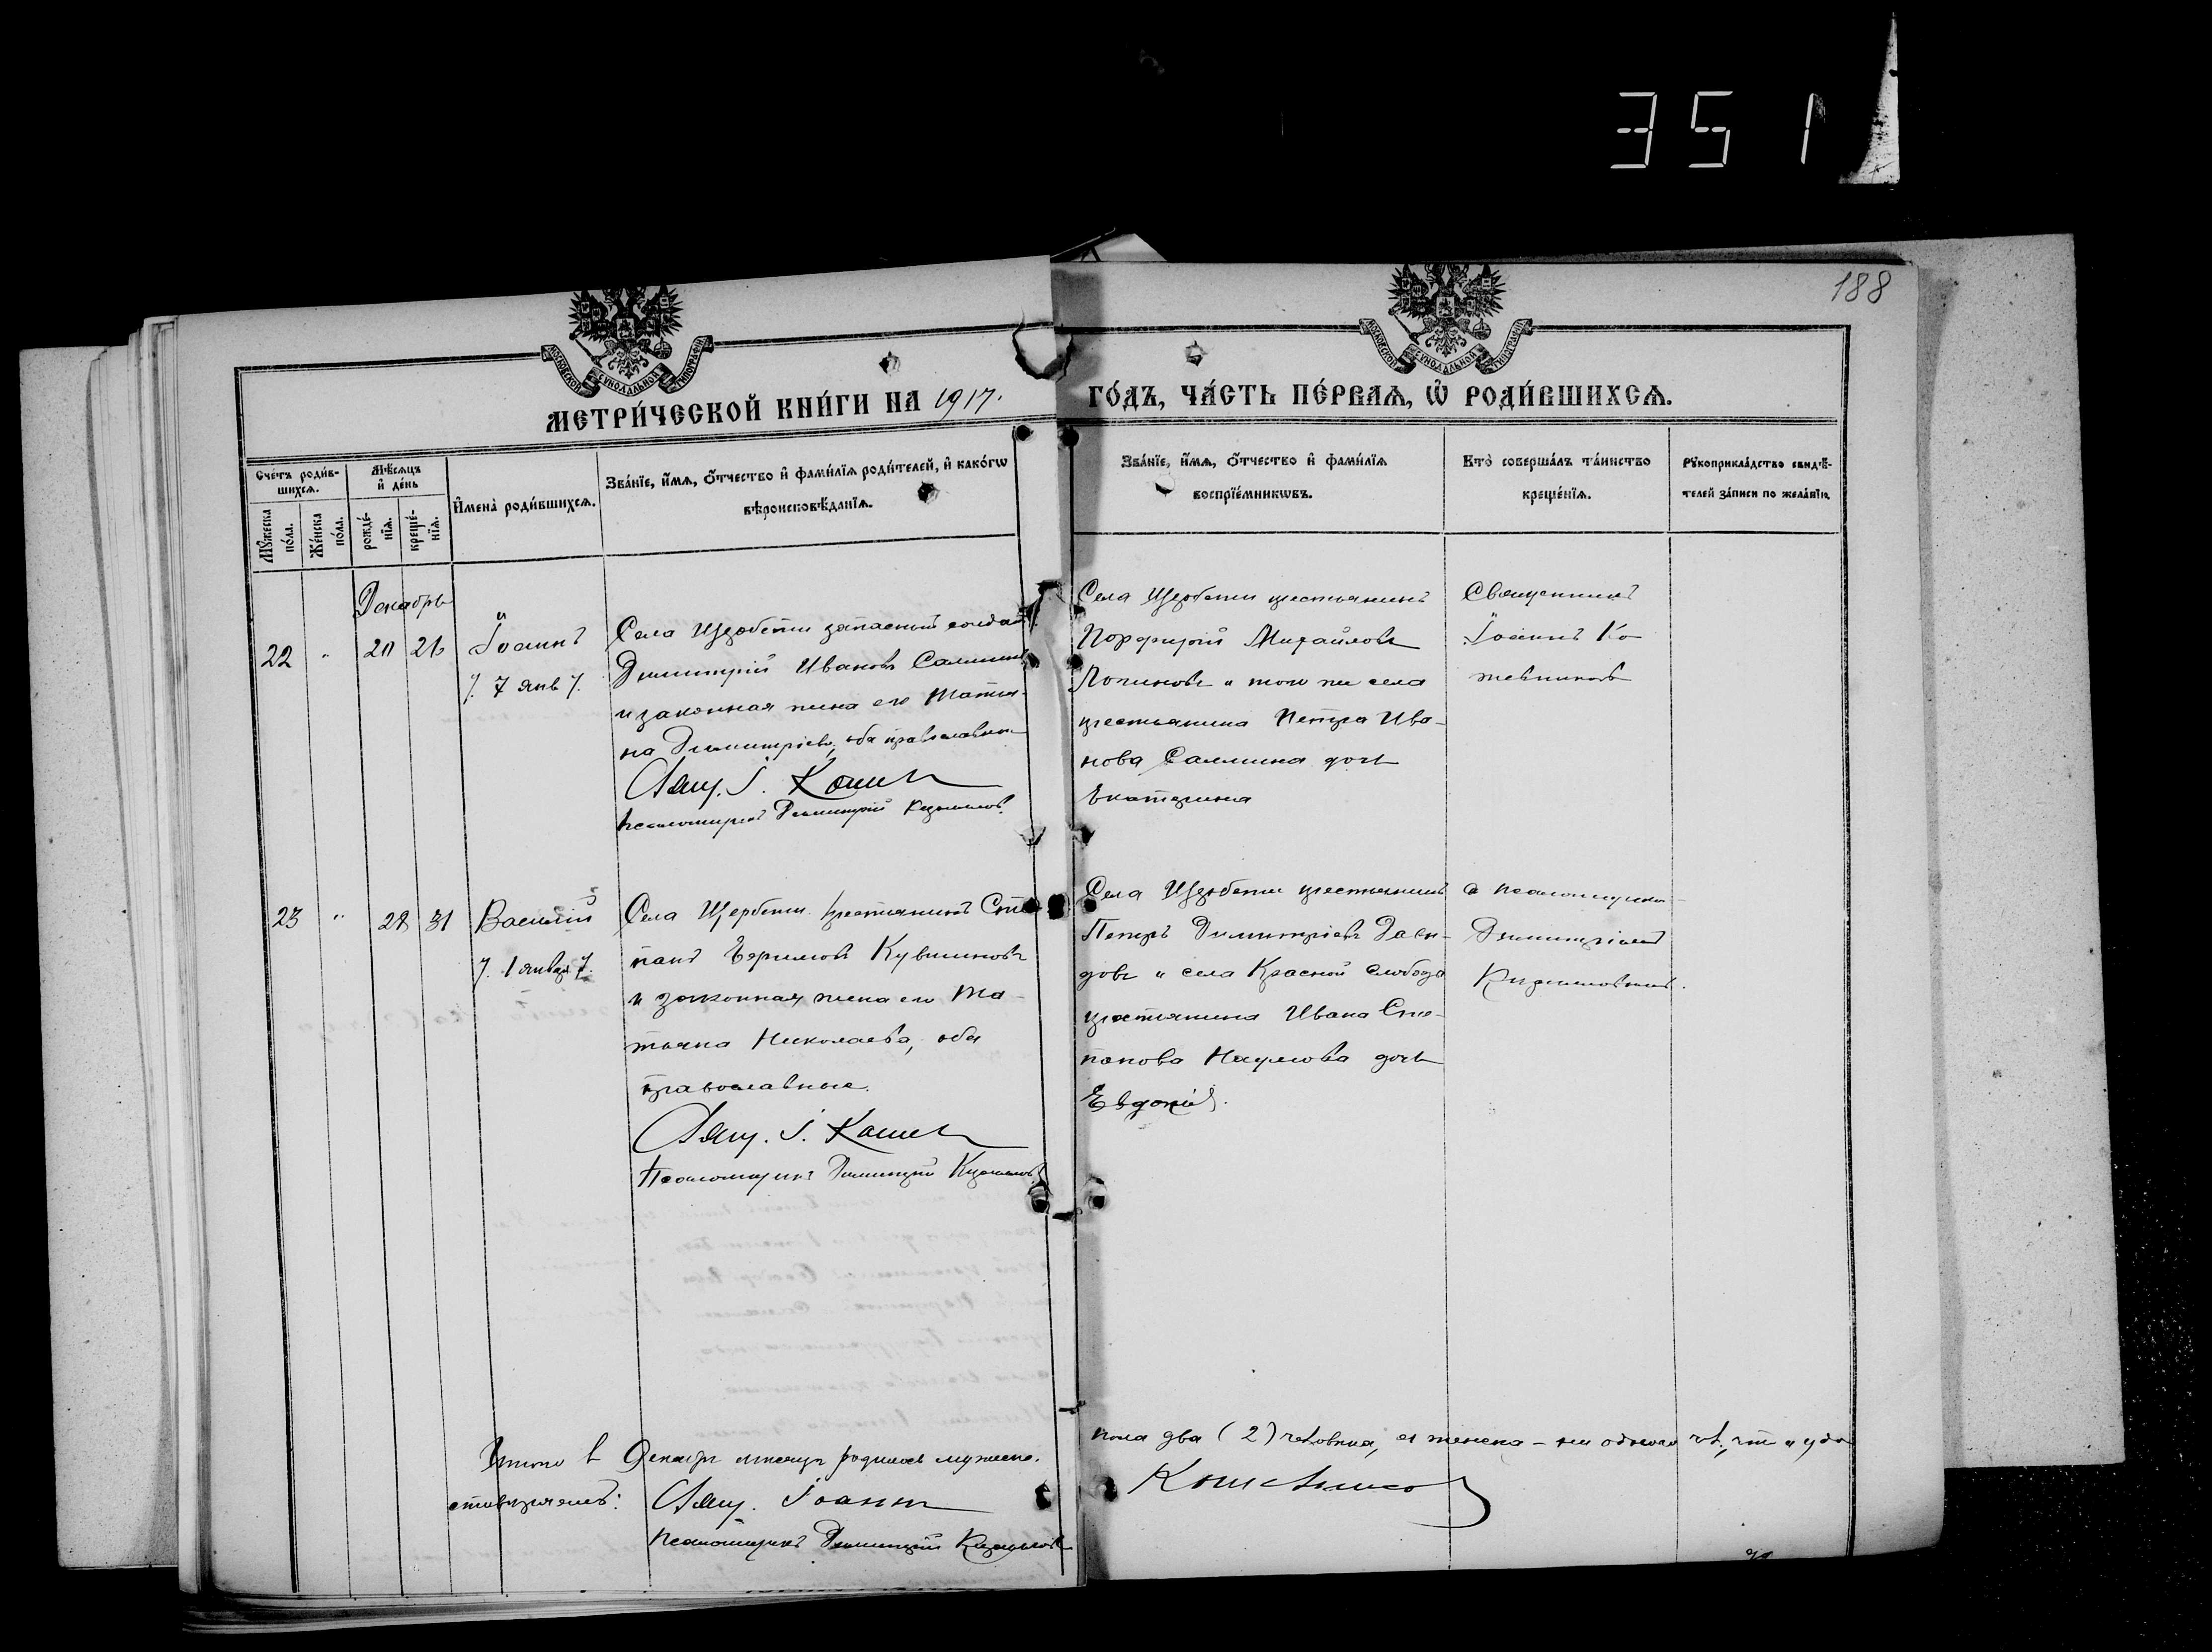 351
188
МОСКОВСКОЙ СѴНОДАЛЬНОЙ ТИПОГРАФІИ
МОСКОВСКОЙ СѴНОДАЛЬНОЙ ТИПОГРАФІИ
МЕТРИ́ЧЕСКОЙ КНИ́ГИ НА 1917.
ГО́ДЪ, ЧА́СТЬ ПЕ́РВАѦ, Ѽ РОДИ́ВШИХСѦ.
Сче́тъ роди́в-
шихсѧ.
Мꙋ́жеска
по́ла.
Же́нска
по́ла.
Мѣ́сѧцъ
и҆ де́нь
рожде́-
нїѧ.
креще́-
нїѧ.
И҆мена̀ роди́вшихсѧ.
Зва́нїе, и҆́мѧ, ѻ҆́тчество и҆ фами́лїѧ роди́телей, и҆ како́гѡ
вѣроисповѣ́данїѧ.
Зва́нїе, и҆́мѧ, ѻ҆́тчество и҆ фами́лїѧ
воспрїе́мникѡвъ.
Кто̀ соверша́лъ та́инство
креще́нїѧ.
Рꙋкоприкла́дство свидѣ́-
телей за́писи по жела́нїю.
Декабрь
22 " 20 21
Іоаннъ
7 янв
Села Щербети запасный солдатъ
Димитрій Ивановъ
и законная жена его Татья-
на Димитріева, оба православные
Свящ. І. Кожев
Псаломщикъ Димитрій
Села Щербети крестьянинъ
Порфирій Михайловъ
Логиновъ и того же села
крестьянина Петра Ива-
нова дочь
Екатерина
Священникъ
Іоаннъ Ко-
жевниковъ
23 " 28 31
Василій
1 января
Села Щербети крестьянинъ Сте-
панъ Ефимовъ Кувшиновъ
и законная жена его Та-
тьяна Николаева, оба
православные.
Свящ. І. Кожев
Псаломщикъ Димитрій
Села Щербети крестьянинъ
Петръ Димитріевъ Давы-
довъ и села Красной Слободы
крестьянина Ивана Сте-
панова Наумова дочь
Евдокія.
с псаломщикомъ
Димитріемъ
Итого в Декабрѣ мѣсяцѣ родилось мужеска
пола два (2) человѣка, а женска - ни одного чел., что и удо-
стовѣряемъ:
Свящ. Іоаннъ
Кожевников
Псаломщикъ Димитрій